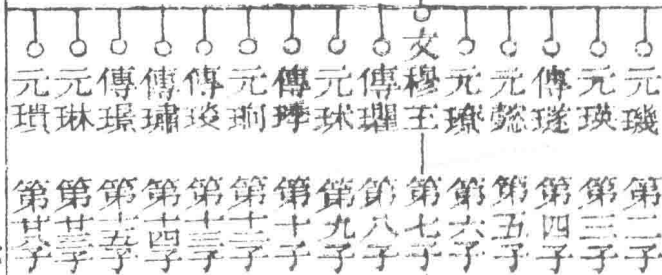 元璣 第二子
元瑛 第三子
傳璲 第四子
元懿 第五子
元璙 第六子
文穆王 第七子
傳 第八子
元球 第九子
傳 第十子
元珦 第十二子
傳琰 第十三子
傳璛 第十四子
傳璟 第十五子
元琳 第廿三子
元璝 第子